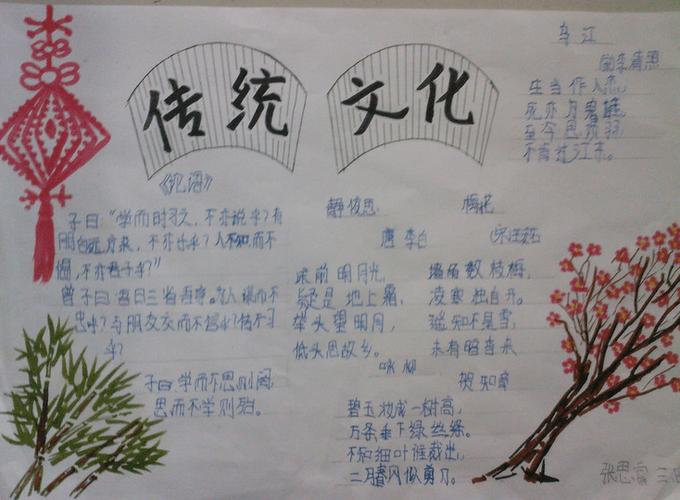 传统 文化
乌江
宋李清照
生当作人杰,
死亦为鬼雄。
至今思项羽,
不肯过江东。
《论语》
子曰:"学而时习之,不亦说乎?有
朋自远方来,不亦乐乎?人不知而不
愠,不亦君子乎?"
曾子曰:吾日三省吾身。为人谋而不
忠乎?与朋友交而不信乎?传不习
乎?
子曰:学而不思则罔,
思而不学则殆。
静夜思
唐 李白
床前明月光,
疑是地上霜,
举头望明月,
低头思故乡。
梅花
宋 王安石
墙角数枝梅,
凌寒独自开。
遥知不是雪,
未有暗香来
咏柳
贺知章
碧玉妆成一树高,
万条垂下绿丝绦。
不知细叶谁裁出,
二月春风似剪刀。
张思 三